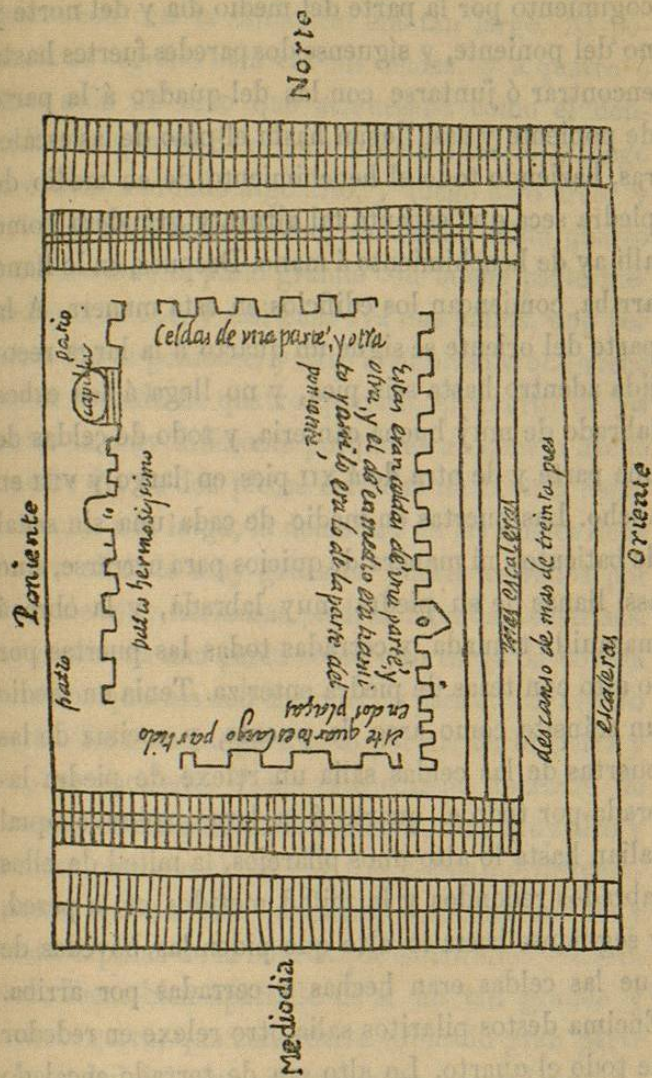 Norte
Poniente
patio
capilla
patio
patio hermosissimo
Celdas de vna parte, y otra
Estas eran celdas de vna parte, y
otra, y el de en medio era
era lo de la parte del
poniente
este quarto es largo partido
en dos plaças
mas escaleras
descanso de mas de treinta pies
escaleras
Oriente
Mediodia